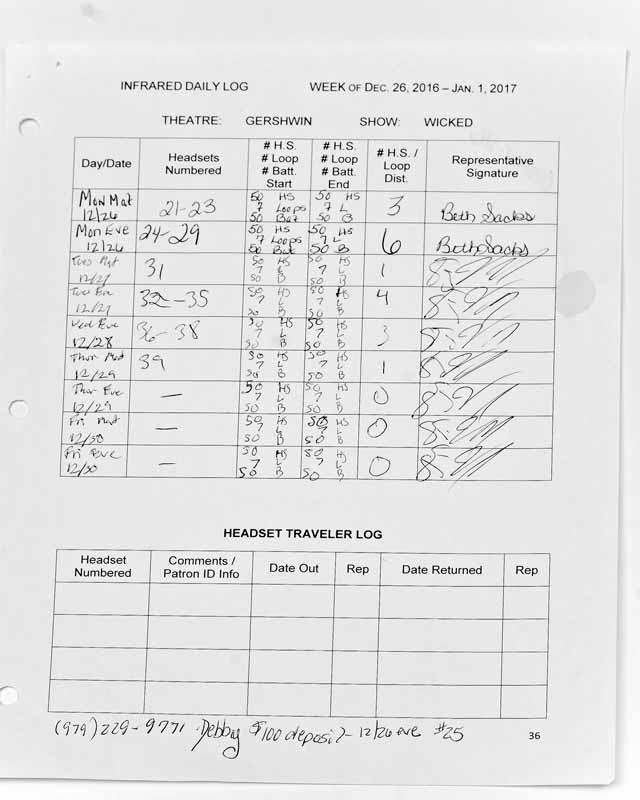 INFRARED DAILY LOG WEEK OF DEC. 26, 2016 – JAN. 1, 2017
THEATRE: GERSHWIN SHOW: WICKED
Day/Date Headsets Numbered # H.S. # Loop # Batt. Start # H.S. # Loop # Batt. End # H.S. / Loop Dist. Representative Signature
Mon Mat 12/26 21-23 50 HS 7 Loops 50 Bat 50 HS 7 L 50 B 3 Beth Sacks
Mon Eve 12/26 24-29 50 HS 7 Loops 50 Bat 50 HS 7 L 50 B 6 Beth Sacks
Tues Mat 12/27 31 50 HS 7 L 50 B 50 HS 7 L 50 B 1
Tues Eve 12/27 32-35 50 HS 7 L 50 B 50 HS 7 L 50 B 4
Wed Eve 12/28 36-38 50 HS 7 L 50 B 50 HS 7 L 50 B 3
Thur Mat 12/29 39 50 HS 7 L 50 B 50 HS 7 L 50 B 1
Thur Eve 12/29 — 50 HS 7 L 50 B 50 HS 7 L 50 B 0
Fri Mat 12/30 — 50 HS 7 L 50 B 50 HS 7 L 50 B 0
Fri Eve 12/30 — 50 HS 7 L 50 B 50 HS 7 L 50 B 0
HEADSET TRAVELER LOG
Headset Numbered Comments / Patron ID Info Date Out Rep Date Returned Rep
(979) 229-9771 Debby $100 deposit - 12/26 eve #25
36